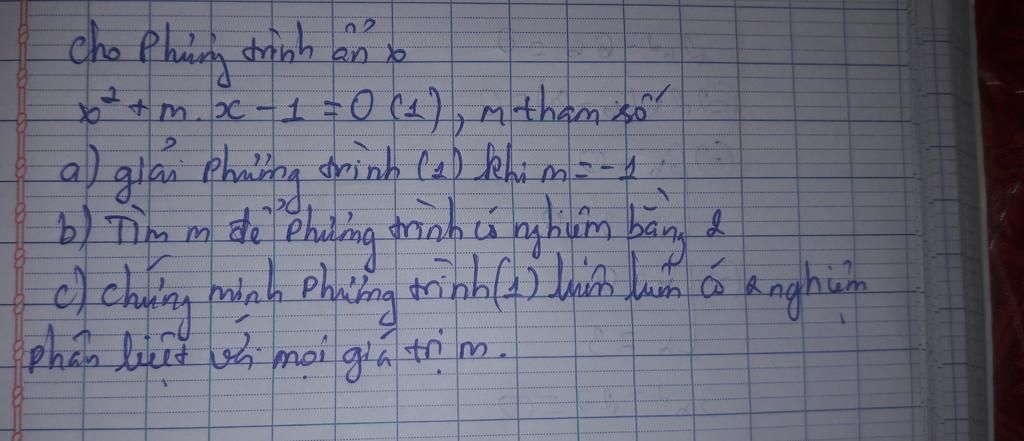 Cho Phương trình ẩn x
x² + m. x - 1 = 0 (1), m tham số
a) giải phương trình (1) khi m = -1
b) Tìm m để phương trình có nghiệm bằng 2
c) chứng minh phương trình (1) luôn luôn có 2 nghiệm
phân biệt với mọi giá trị m.